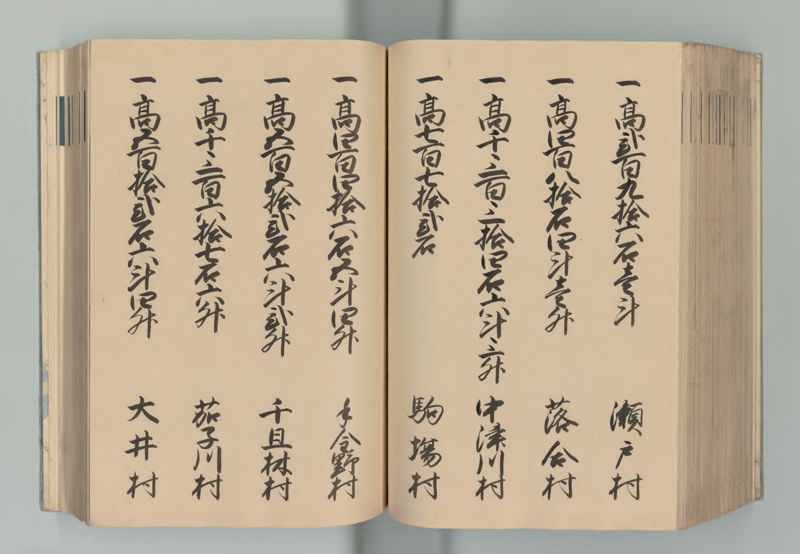 一 高弐百九拾六石壱斗 瀬戸村
一 高四百八拾石四斗壱升 落合村
一 高千三百三拾四石六斗三升 中津川村
一 高七百七拾弐石 駒場村
一 高四百四拾六石五斗四升 手金野村
一 高五百五拾弐石六斗弐升 千旦林村
一 高千三百六拾七石六升 茄子川村
一 高五百拾弐石六斗四升 大井村